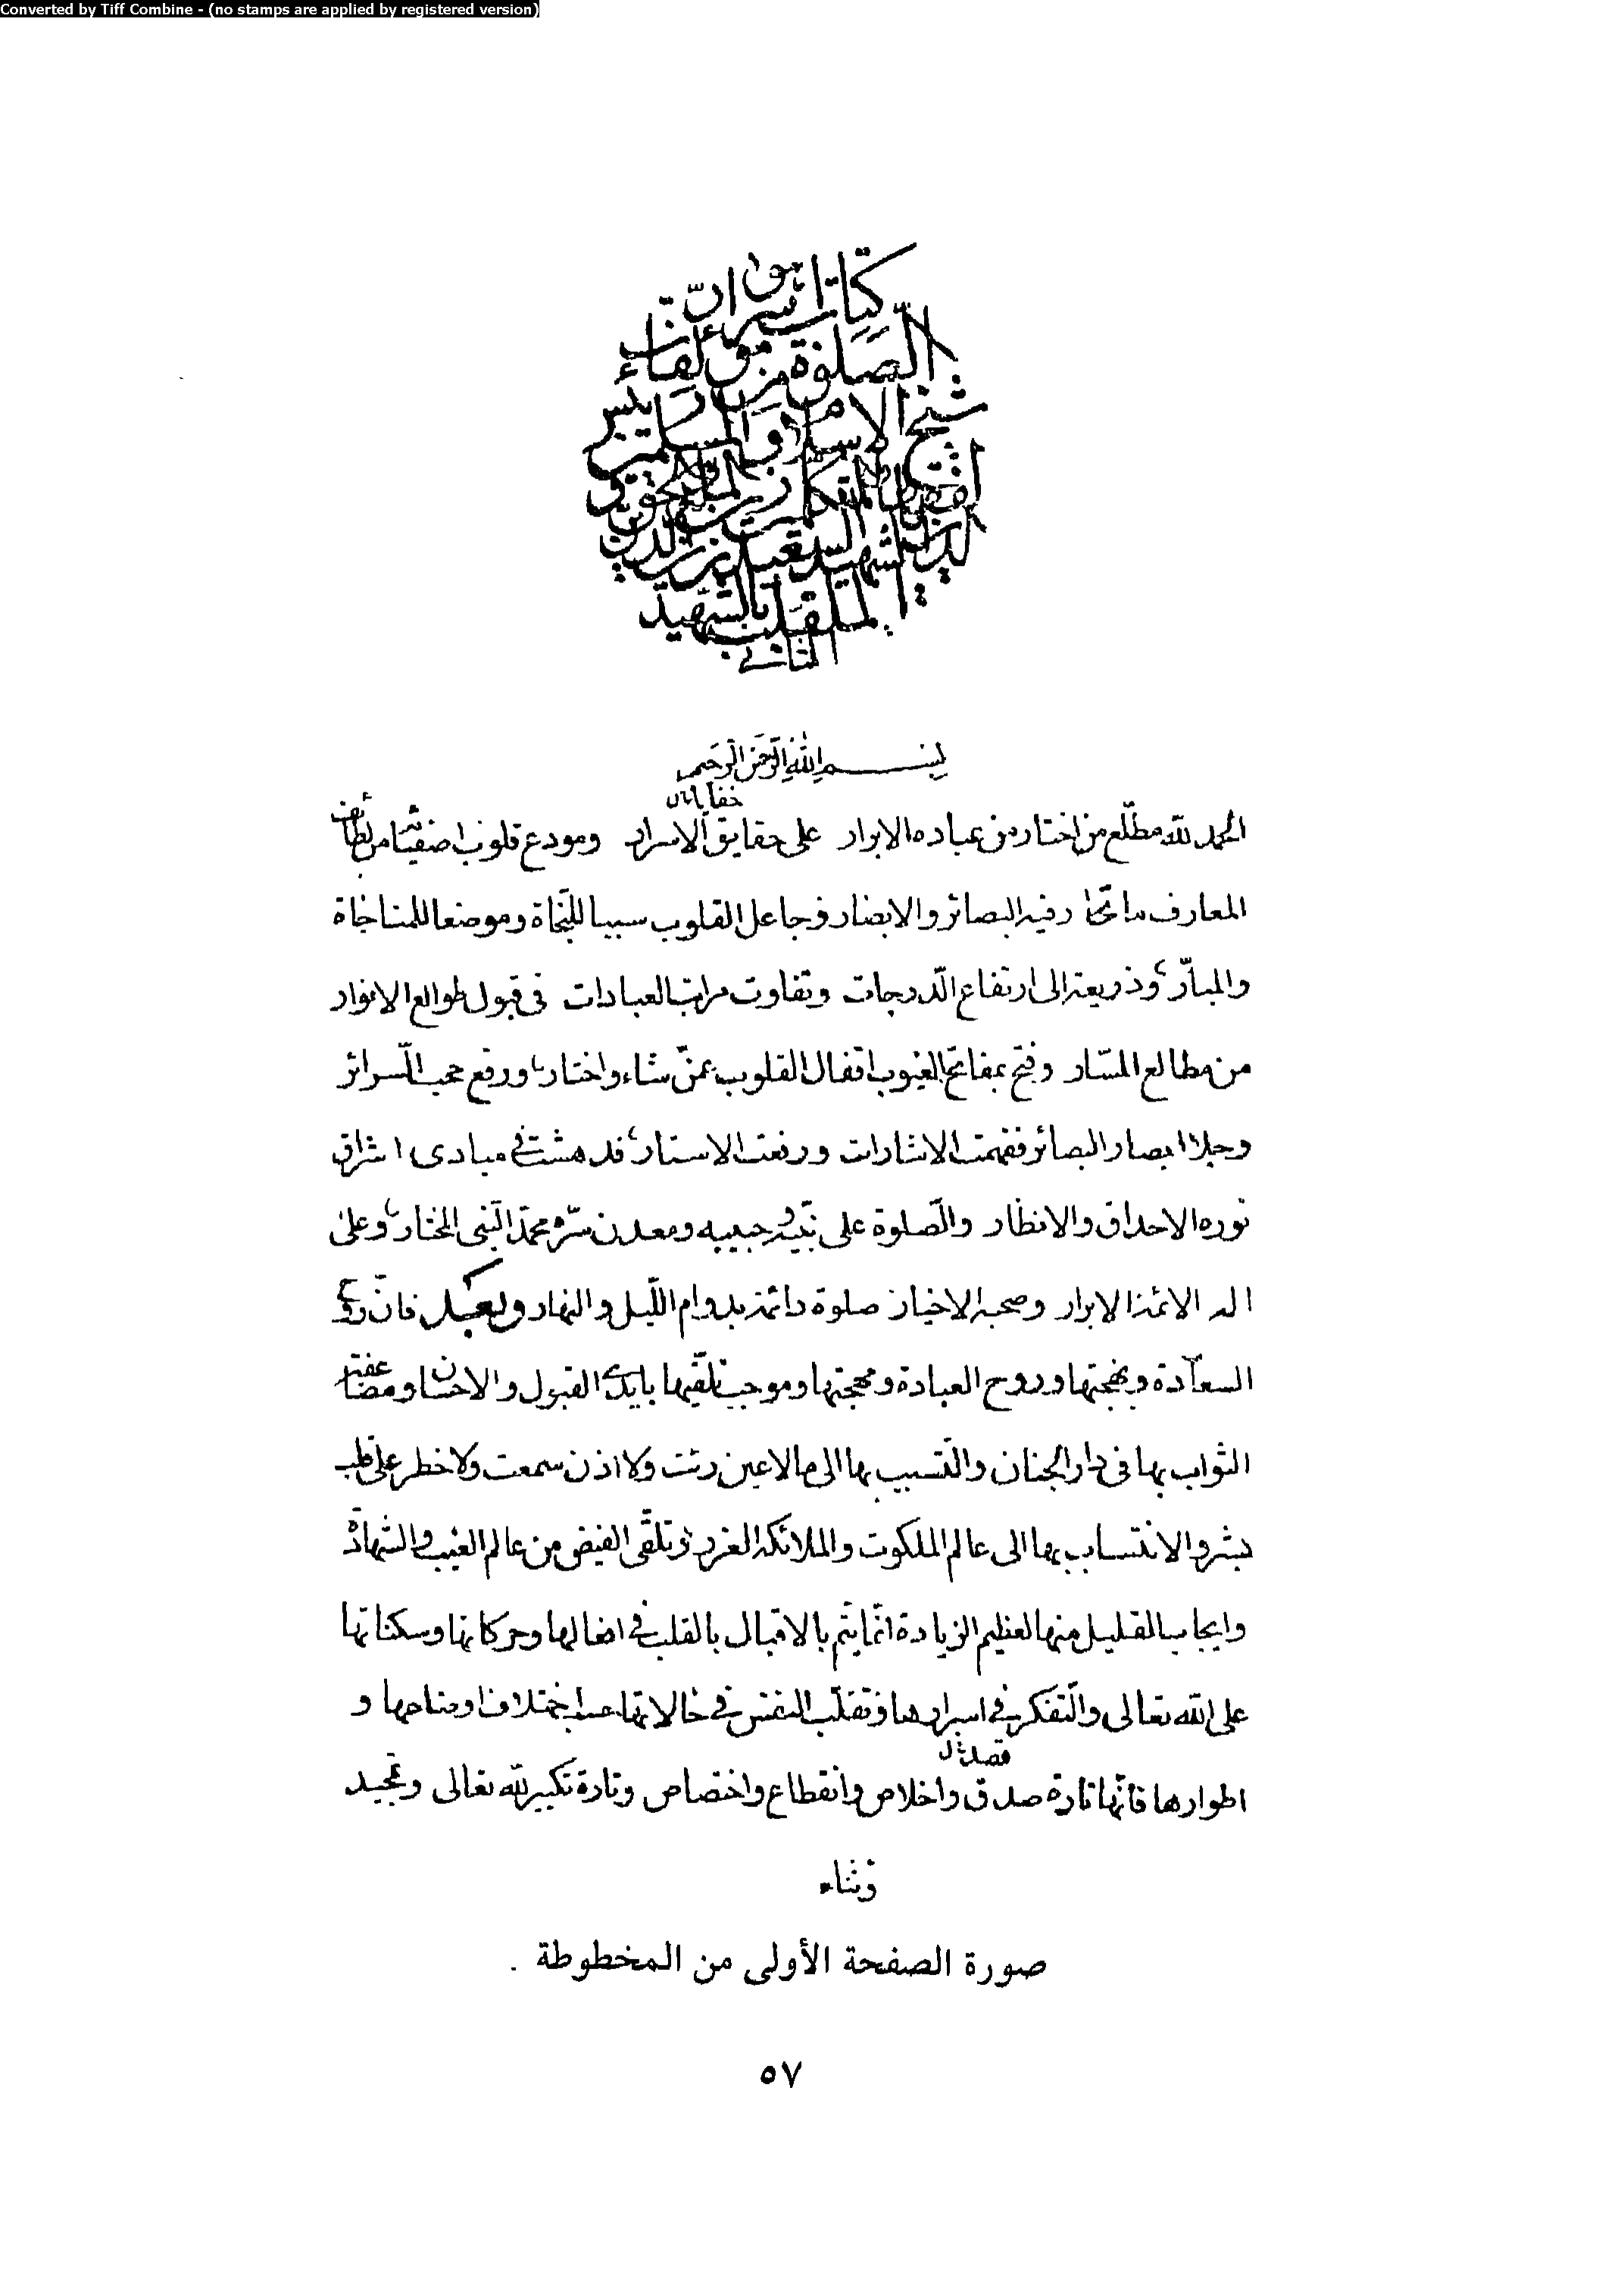 Converted by Tiff Combine - (no stamps are applied by registered version)
هو
كتاب اسرار
الصلوة من مؤلفات
شيخ الاسلام والمسلمين
الشهيد السعيد زين الدين
الملقب بالشهيد
الثاني
بسم الله الرحمن الرحيم
خفايا
الحمد لله مطلع من اختار من عباده الابرار على حقايق الاسرار ومودع قلوب اصفيائه من لطائف
المعارف ما تحار فيه البصائر والابصار وجاعل القلوب سببا للنجاة وموضعا للمناجاة
والمبارّ وذريعة الى ارتفاع الدرجات وتفاوت مراتب العبادات في قبول طوالع الانوار
من مطالع المسار وفتح بمفاتح الغيوب اقفال القلوب عمن شاء واختار ورفع حجب السرائر
وجلا ابصار البصائر ففهمت الاشارات ورفعت الاستار فدهشت في مبادى اشراق
نوره الاحداق والانظار والصلوة على نبيه وحبيبه ومعدن سره محمد النبى المختار وعلى
اله الائمة الابرار وصحبه الاخيار صلوة دائمة بدوام الليل والنهار وبعد فان روح
السعادة وبهجتها وروح العبادة ومهجتها وموجب تلقيها بايدى القبول والاحسان ومضاعفة
الثواب بها في دار الجنان والتسبيب بها الى ما لا عين رئت ولا اذن سمعت ولا خطر على قلب
بشر والانتساب بها الى عالم الملكوت والملائكة الغرر وتلقى الفيض من عالم الغيب والشهادة
وايجاب القليل منها لعظيم الزيادة انما يتم بالاقبال بالقلب في افعالها وحركاتها وسكناتها
على الله تعالى والتفكر في اسرارها وتقلب النفس في حالاتها حسب اختلاف اوضاعها و
قصد
اطوارها فانها تارة صدق واخلاص وانقطاع واختصاص وتارة تكبير لله تعالى وتمجيد
وثناء
صورة الصفحة الأولى من المخطوطة .
٥٧